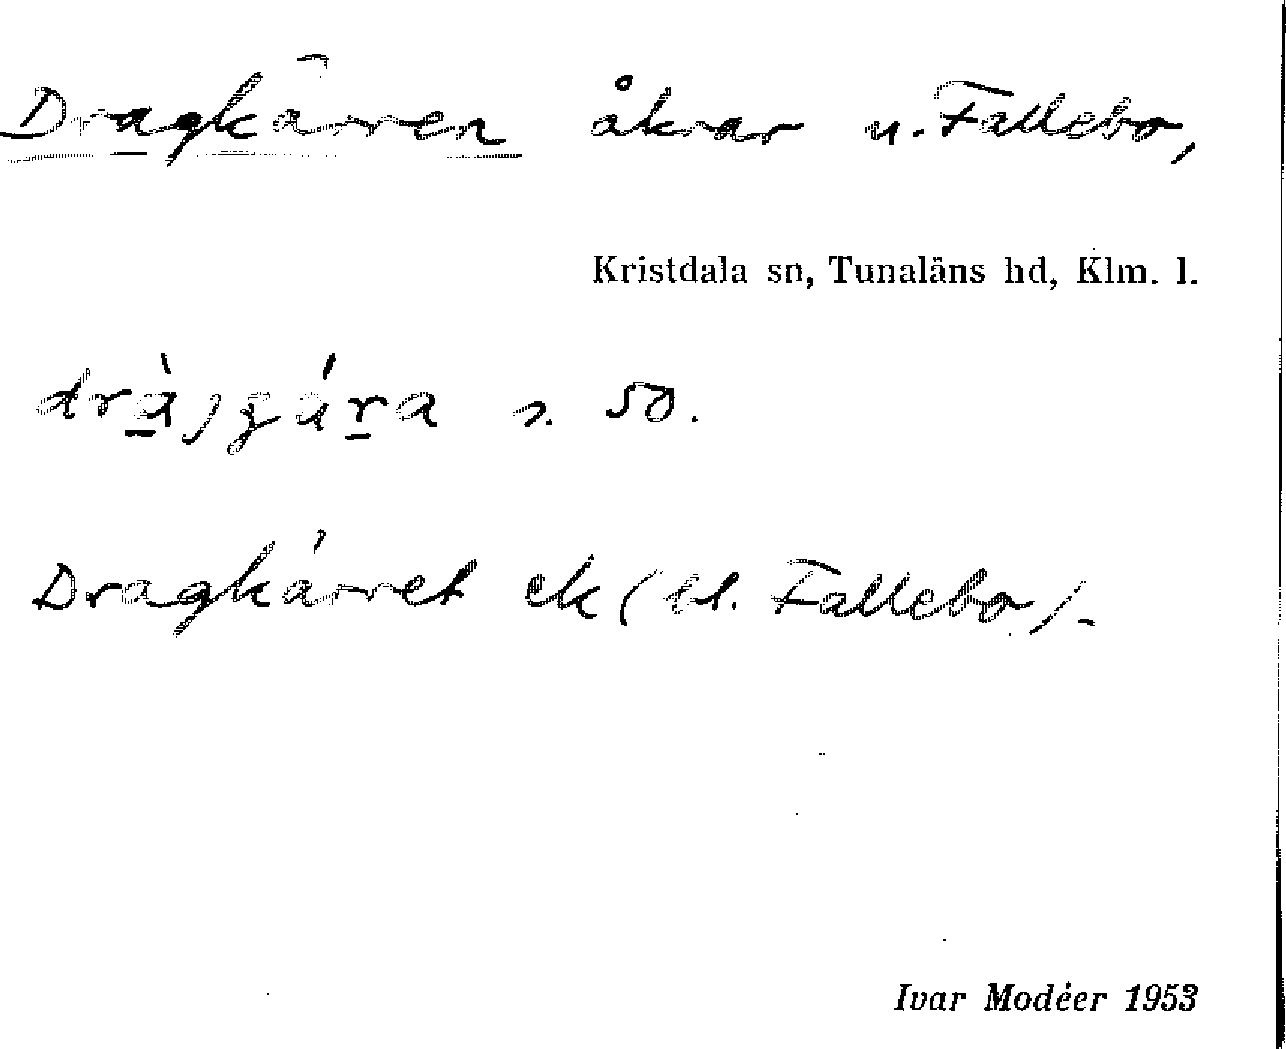 Dragkärren åkrar u. Fallebo,
Kristdala sn, Tunaläns hd, Klm. l.
s. 50.
Dragkärret ek (bl. Fallebo).
Ivar Modéer 1953